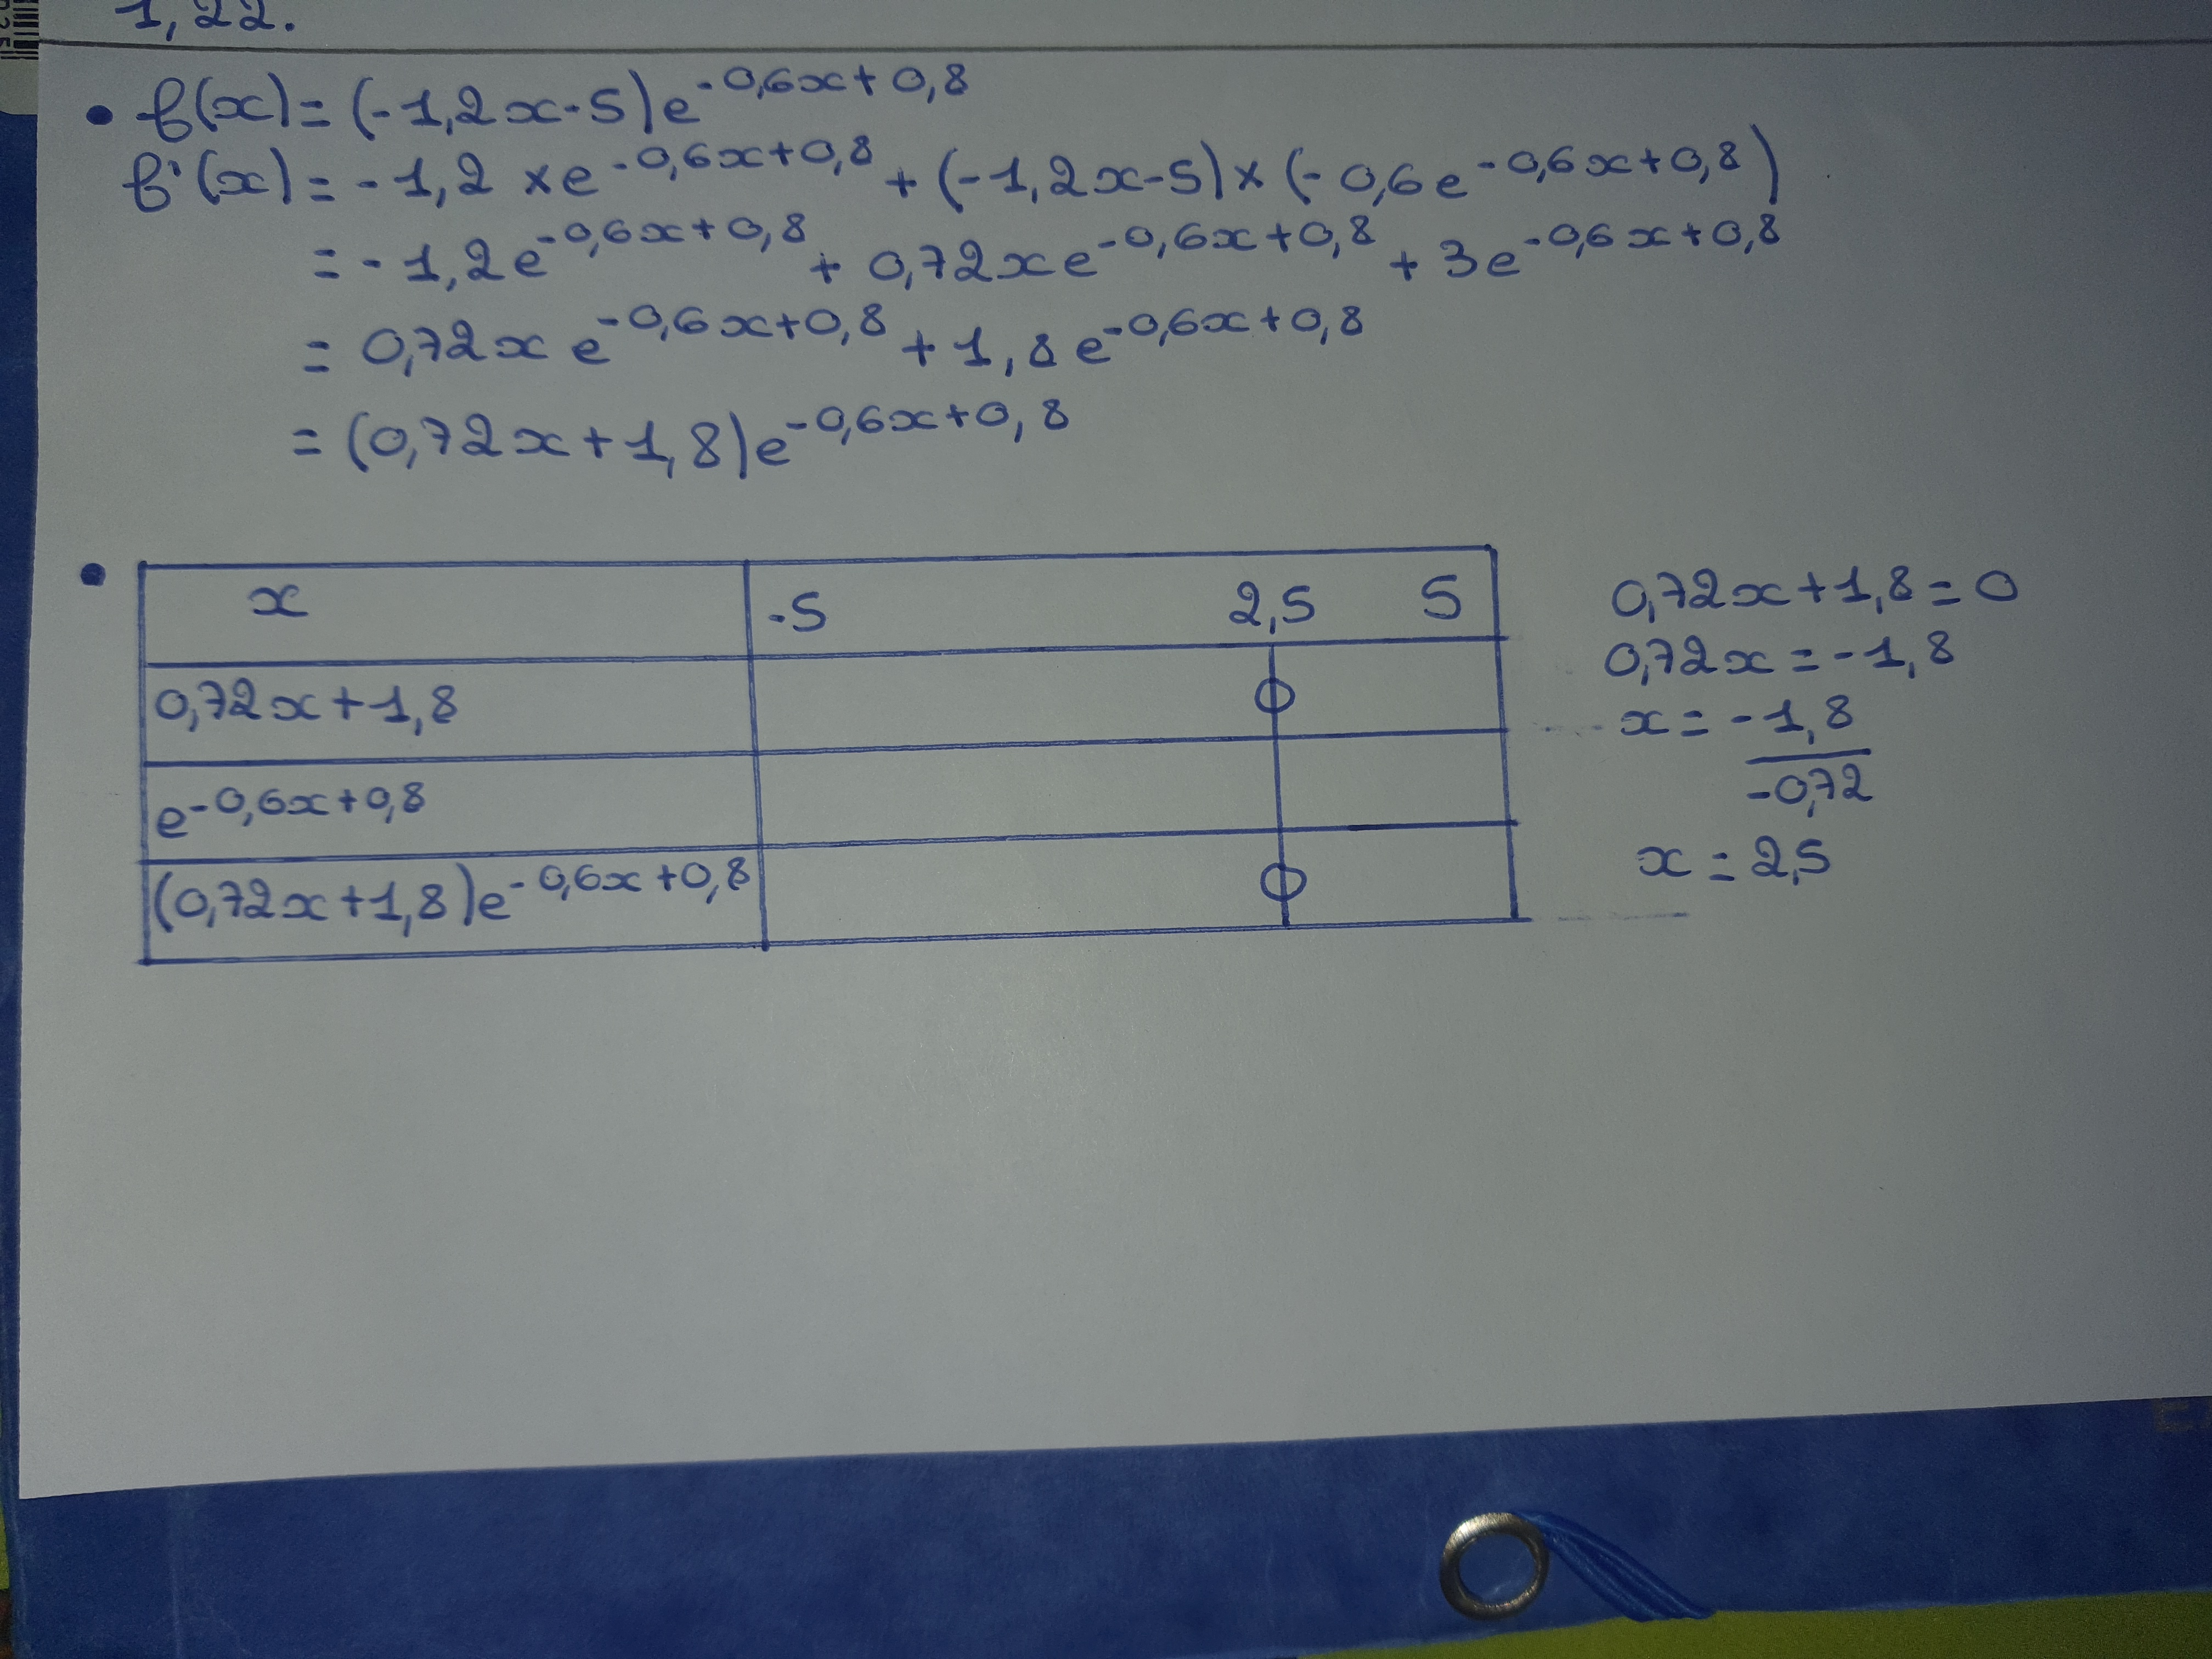 1,22.
• f(x) = (-1,2x-5)e^-0,6x+0,8
f'(x) = -1,2 × e^-0,6x+0,8 + (-1,2x-5) × (-0,6e^-0,6x+0,8)
= -1,2e^-0,6x+0,8 + 0,72xe^-0,6x+0,8 + 3e^-0,6x+0,8
= 0,72x e^-0,6x+0,8 + 1,8e^-0,6x+0,8
= (0,72x+1,8)e^-0,6x+0,8
• x -5 2,5 5
0,72x+1,8 0
e^-0,6x+0,8
(0,72x+1,8)e^-0,6x+0,8 0
0,72x+1,8=0
0,72x=-1,8
x = -1,8
-0,72
x = 2,5